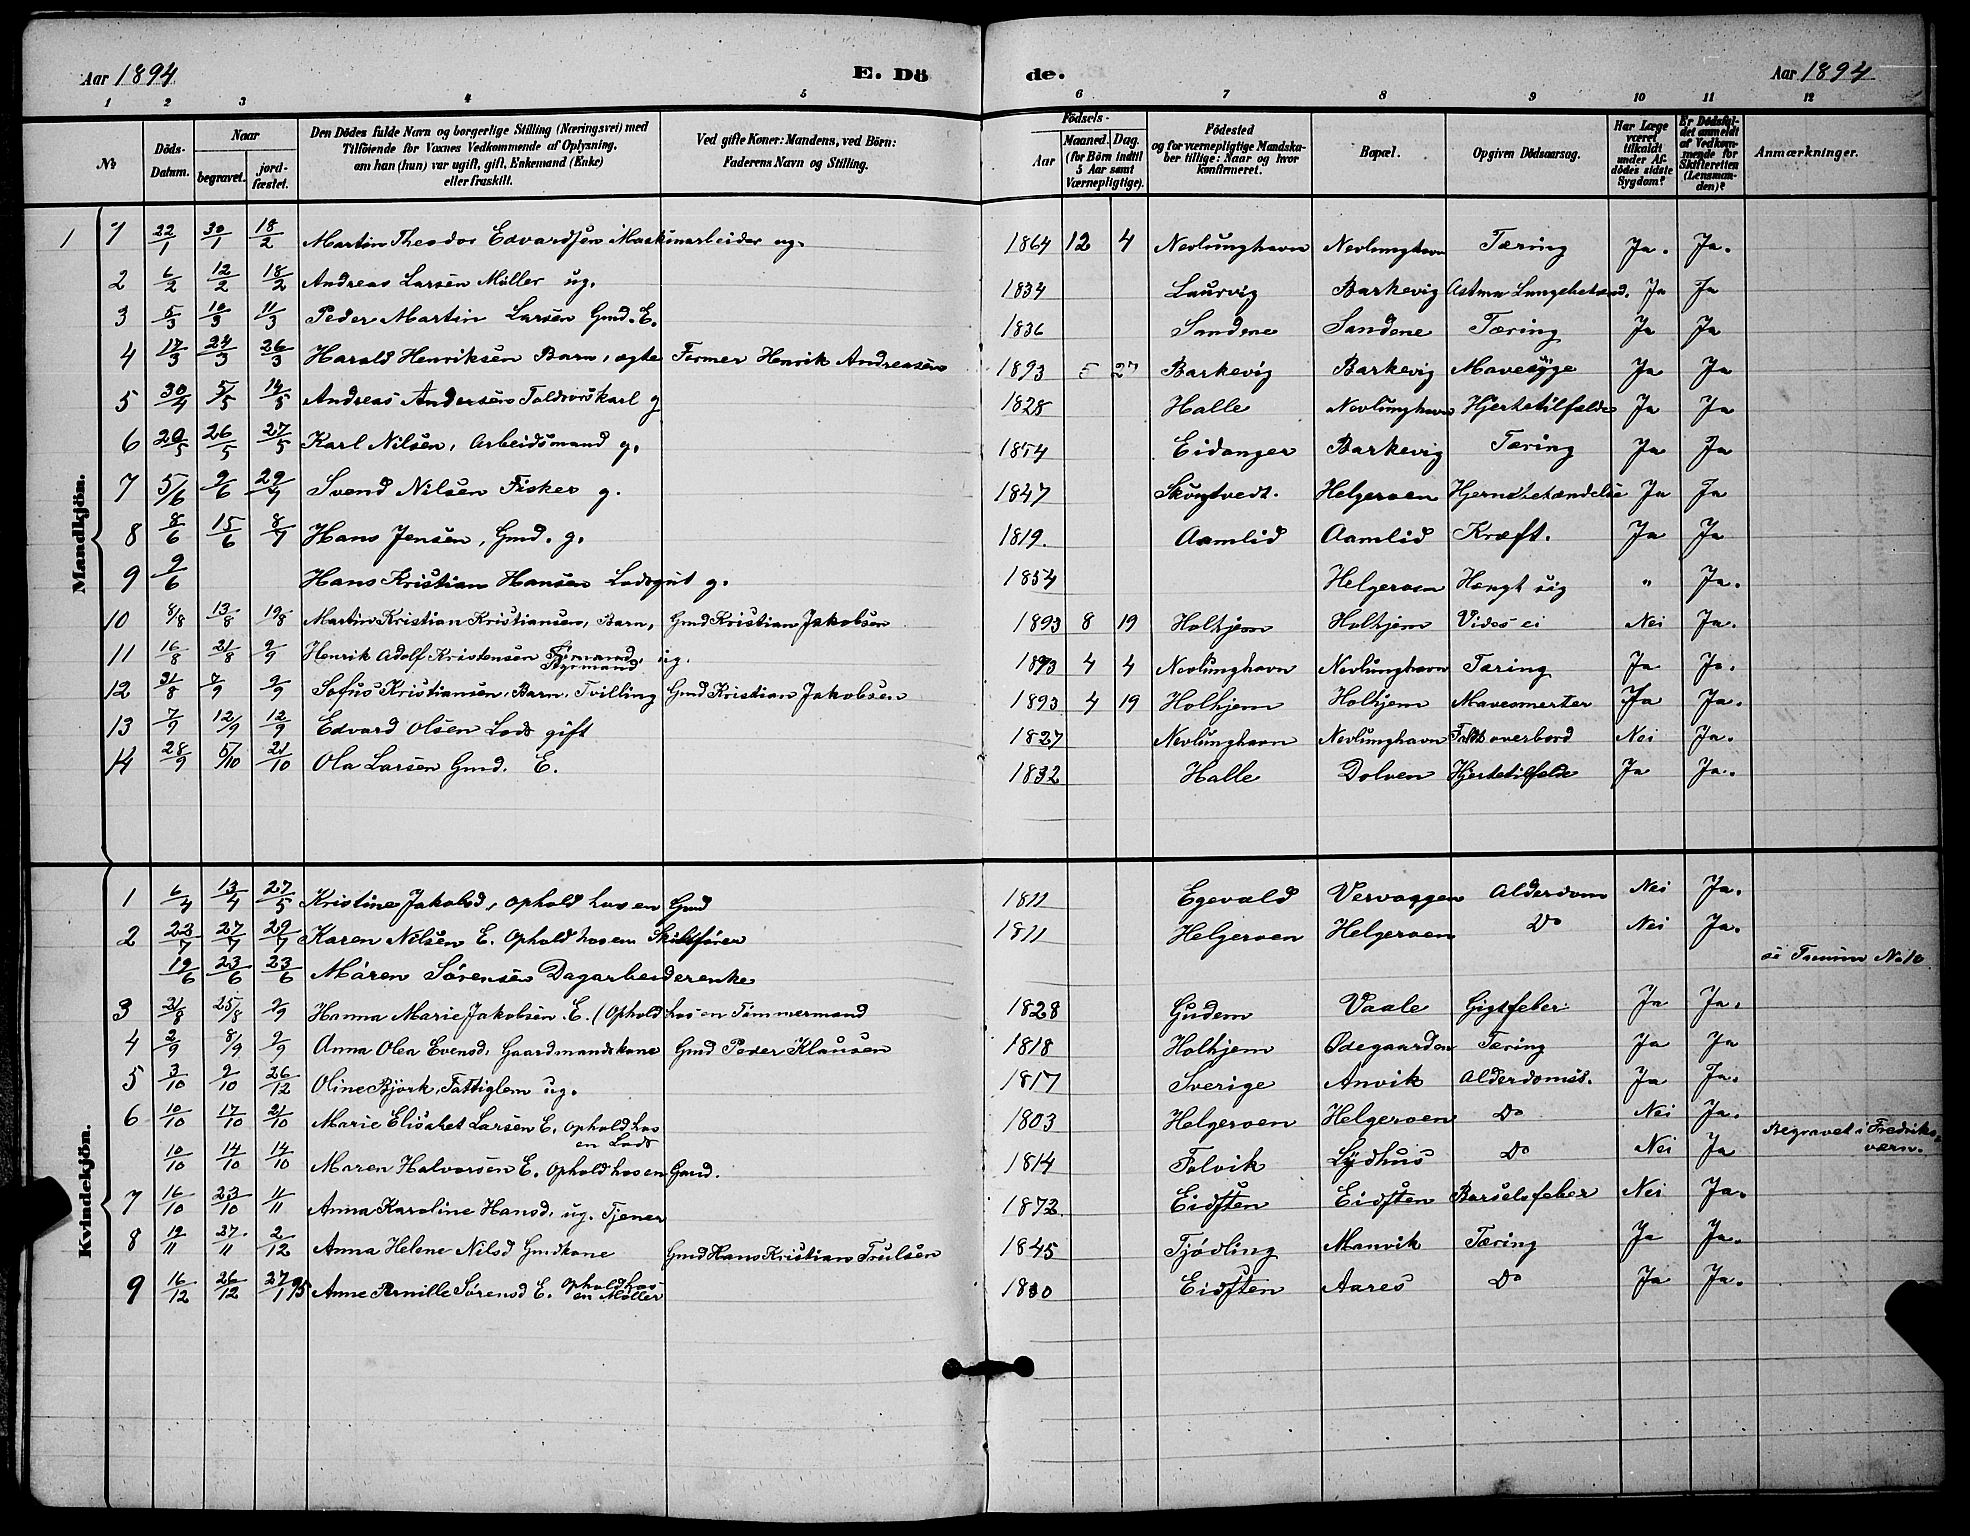 Aar 1894 E. Dö de. Aar 1894
1 2 3 4 5 6 7 8 9 10 11 12
№ Döds-Datum. Naar begravet. jord-fæstet. Den Dödes fulde Navn og borgerlige Stilling (Næringsvei) med Tilföiende for Voxnes Vedkommende af Oplysning, om han (hun) var ugift, gift, Enkemand (Enke) eller fraskilt. Ved gifte Koner: Mandens, ved Börn: Faderens Navn og Stilling. Födsels- Aar Maaned. Dag. (for Börn indtil 5 Aar samt Værnepligtige). Födested og for værnepligtige Mandska-ber tillige: Naar og hvor konfirmeret. Bopæl. Opgiven Dödsaarsag. Har Læge været tilkaldt under Af-dödes sidste Sygdom? Er Dödsfal-det anmeldt af Vedkom-mende for Skifteretten (Lensman-den)? Anmærkninger.
Mandkjön.
1 1 22/1 30/1 18/2 Martin Theodor Edvardsen Maskinarbeider ug. 1864 12 4 Nevlunghavn Nevlunghavn Tæring Ja. Ja.
2 6/2 12/2 18/2 Andreas Larsen Møller ug. 1834 Laurvig Barkevig Astma Lungebetænd. Ja Ja
3 5/3 10/3 11/3 Peder Martin Larsen Gmd. E. 1836 Sandene Sandene Tæring Ja Ja
4 17/3 24/3 26/3 Harald Henriksen Barn, ægte Former Henrik Andreasen 1893 5 27 Barkevig Barkevig Mavesyge Ja Ja
5 30/4 5/5 14/5 Andreas Andersen Toldrorskarl g 1828 Halle Nevlunghavn Hjertetilfælde Ja Ja
6 20/5 26/5 27/5 Karl Nilsen, Arbeidsmand g. 1854 Eidanger Barkevig Tæring Ja Ja
7 5/6 9/6 29/7 Svend Nilsen Fisker g. 1847 Helgeroen Hjernebetændelse Ja Ja
8 8/6 15/6 8/7 Hans Jensen, Gmd. g. 1819. Aamlid Aamlid Kræft. Ja Ja
9 9/6 Hans Kristian Hansen Lodsgut g. 1854 Helgeroen Hængt sig " Ja.
10 8/8 13/8 19/8 Martin Kristian Kristiansen, Barn, Gmd Kristian Jakobsen 1893 8 19 Holhjem Holhjem Vides ei Nei Ja.
11 16/8 21/8 9/9 Henrik Adolf Kristensen Styrmand ug. 4 4 Nevlunghavn Nevlunghavn Tæring Ja Ja.
12 31/8 7/9 9/9 Sofus Kristiansen, Barn, Tvilling Gmd Kristian Jakobsen 1893 4 19 Holhjem Holhjem Mavesmerter Ja Ja.
13 7/9 12/9 12/9 Edvard Olsen Lods gift 1827 Nevlunghavn Nevlunghavn Faldt overbord Nei Ja.
14 28/9 5/10 21/10 Ola Larsen Gmd. E. 1832 Halle Dolven Hjertetilfælde Ja Ja.
Kvindekjön.
1 6/4 13/4 27/5 Kristine Jakobsd, Ophold hos en Gmd 1811 Egevald Vervaggen Alderdom Nei Ja.
2 23/7 27/7 29/7 Karen Nilsen E. Ophold hos en Skibsfører 1811 Helgeroen Helgeroen Do Nei Ja.
19/6 23/6 23/6 Maren Sørensen Dagarbeiderenke
3 21/8 25/8 9/9 Hanna Marie Jakobsen. E. (Ophold hos en Tømmermand 1828 Gudem Vaale Gigtfeber Ja Ja.
4 2/9 8/9 9/9 Anna Olea Evensd, Gaardmandskone Gmd Peder Klausen 1818 Holhjem Ødegaarden Tæring Ja Ja
5 3/10 9/10 26/12 Oline Bjørk, Fattiglem ug. 1817 Sverige Anvik Alderdomss. Ja Ja.
6 10/10 17/10 21/10 Marie Elisabet Larsen E. Ophold hos en Lods 1803 Helgeroen Helgeroen Do Nei Ja.
10/10 14/10 14/10 Maren Halvorsen E. Ophold hos en Gmd. 1814 Folvik Lydhus Do Nei Ja Begravet i Fredriks-værn.
7 16/10 23/10 11/11 Anna Karoline Hansd, ug. Tjener 1872 Eidsten Eidsten Barselsfeber Nei Ja.
8 19/11 27/11 2/12 Anna Helene Nilsd Gmdkone Gmd Hans Kristian Trulsen 1845 Tjødling Manvik Tæring Ja Ja.
9 16/12 26/12 27/1 95 Anne Pernille Sørensd E. Ophold hos en Møller Eidsten Aares Do Ja Ja.